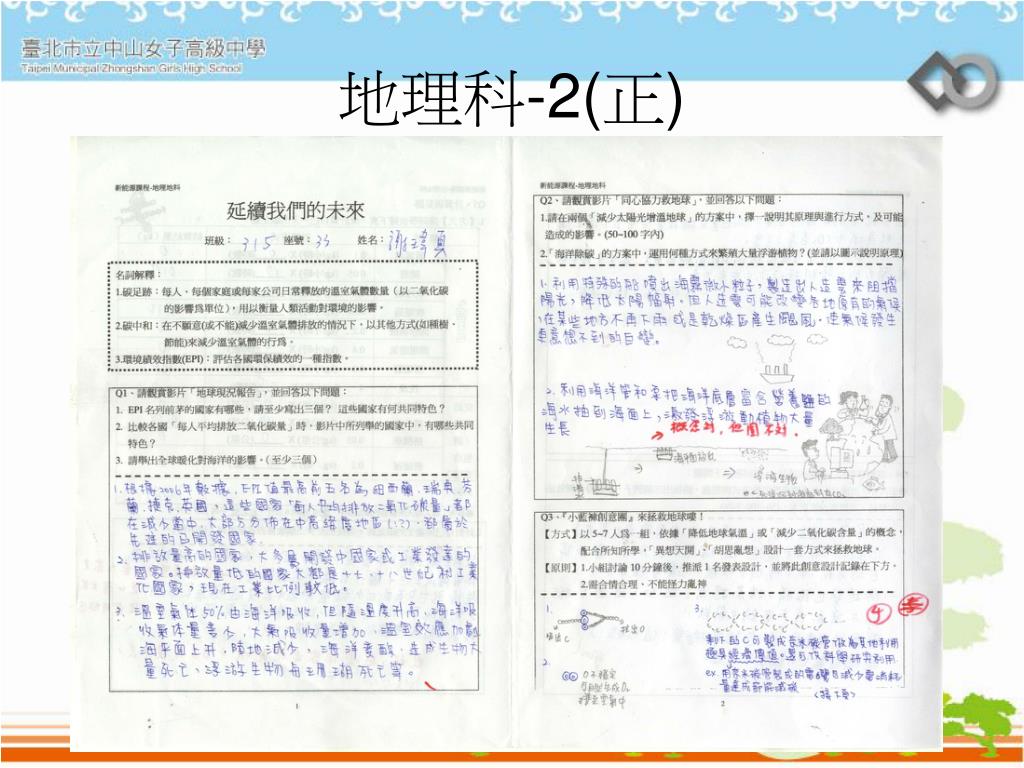 臺北市立中山女子高級中學
Taipei Municipal Zhongshan Girls High School
地理科-2(正)
新能源課程-地理地科
延續我們的未來
班級： 315 座號：33 姓名：
名詞解釋：
1.碳足跡：每人、每個家庭或每家公司日常釋放的溫室氣體數量（以二氧化碳
的影響為單位），用以衡量人類活動對環境的影響。
2.碳中和：在不願意(或不能)減少溫室氣體排放的情況下，以其他方式(如種樹、
節能)來減少溫室氣體的行為。
3.環境績效指數(EPI)：評估各國環保績效的一種指數。
Q1、請觀賞影片「地球現況報告」，並回答以下問題：
1. EPI 名列前茅的國家有哪些，請至少寫出三個？ 這些國家有何共同特色？
2. 比較各國「每人平均排放二氧化碳量」時，影片中所列舉的國家中，有哪些共同
特色？
3. 請舉出全球暖化對海洋的影響。（至少三個）
1.根據2006年數據，EPI值最高前五名為紐西蘭、瑞典、芬
蘭、捷克、英國，這些國家「每人平均排放二氧化碳量」都
在減少當中，大部分分佈在中高緯度地區(!?)，都屬於
先進的已開發國家。
2.排放量高的國家，大多屬開發中國家或工業發達的
國家。排放量低的國家大都是十七、十八世紀初工業
化國家，現在工業比例較低。
3.溫室氣體50%由海洋吸收，但隨溫度升高，海洋吸
收氣體量減少，大氣吸收量增加，溫室效應加劇
海平面上升，陸地減少，海洋素酸，造成生物大
量死亡、浮游生物、珊瑚死亡等。
1
新能源課程-地理地科
Q2、請觀賞影片「同心協力救地球」，並回答以下問題：
1.請在兩個「減少太陽光增溫地球」的方案中，擇一說明其原理與進行方式，及可能
造成的影響。(50~100 字內)
2.「海洋除碳」的方案中，運用何種方式來繁殖大量浮游植物？(並請以圖示說明原理)
1.利用特殊的船噴出海霧微小粒子，製造出人造雲來阻擋
陽光，降低太陽輻射。但人造雲可能改變各地原有的氣候
，在某些地方不再下雨或是乾燥區產生颶風，使氣候發生
更意想不到的改變。
2.利用海洋管和泵把海洋底層富含營養鹽的
海水抽到海面上，激發浮游動植物大量
生長
概念對，但圖不對．
Q3、『小藍褲創意團』來拯救地球嘍！
【方式】以 5~7 人為一組，依據「降低地球氣溫」或「減少二氧化碳含量」的概念，
配合所知所學，「異想天開」、「胡思亂想」設計一套方式來拯救地球。
【原則】1.小組討論 10 分鐘後，推派 1 名發表設計，並將此創意設計記錄在下方。
2.需合情合理，不能怪力亂神
1.
2.
3.
④
剩下的C可製成奈米碳管做為其他利用
極具經濟價值，還可供科學研究利用
ex.用奈米碳管製成的電腦可減少電消耗
2